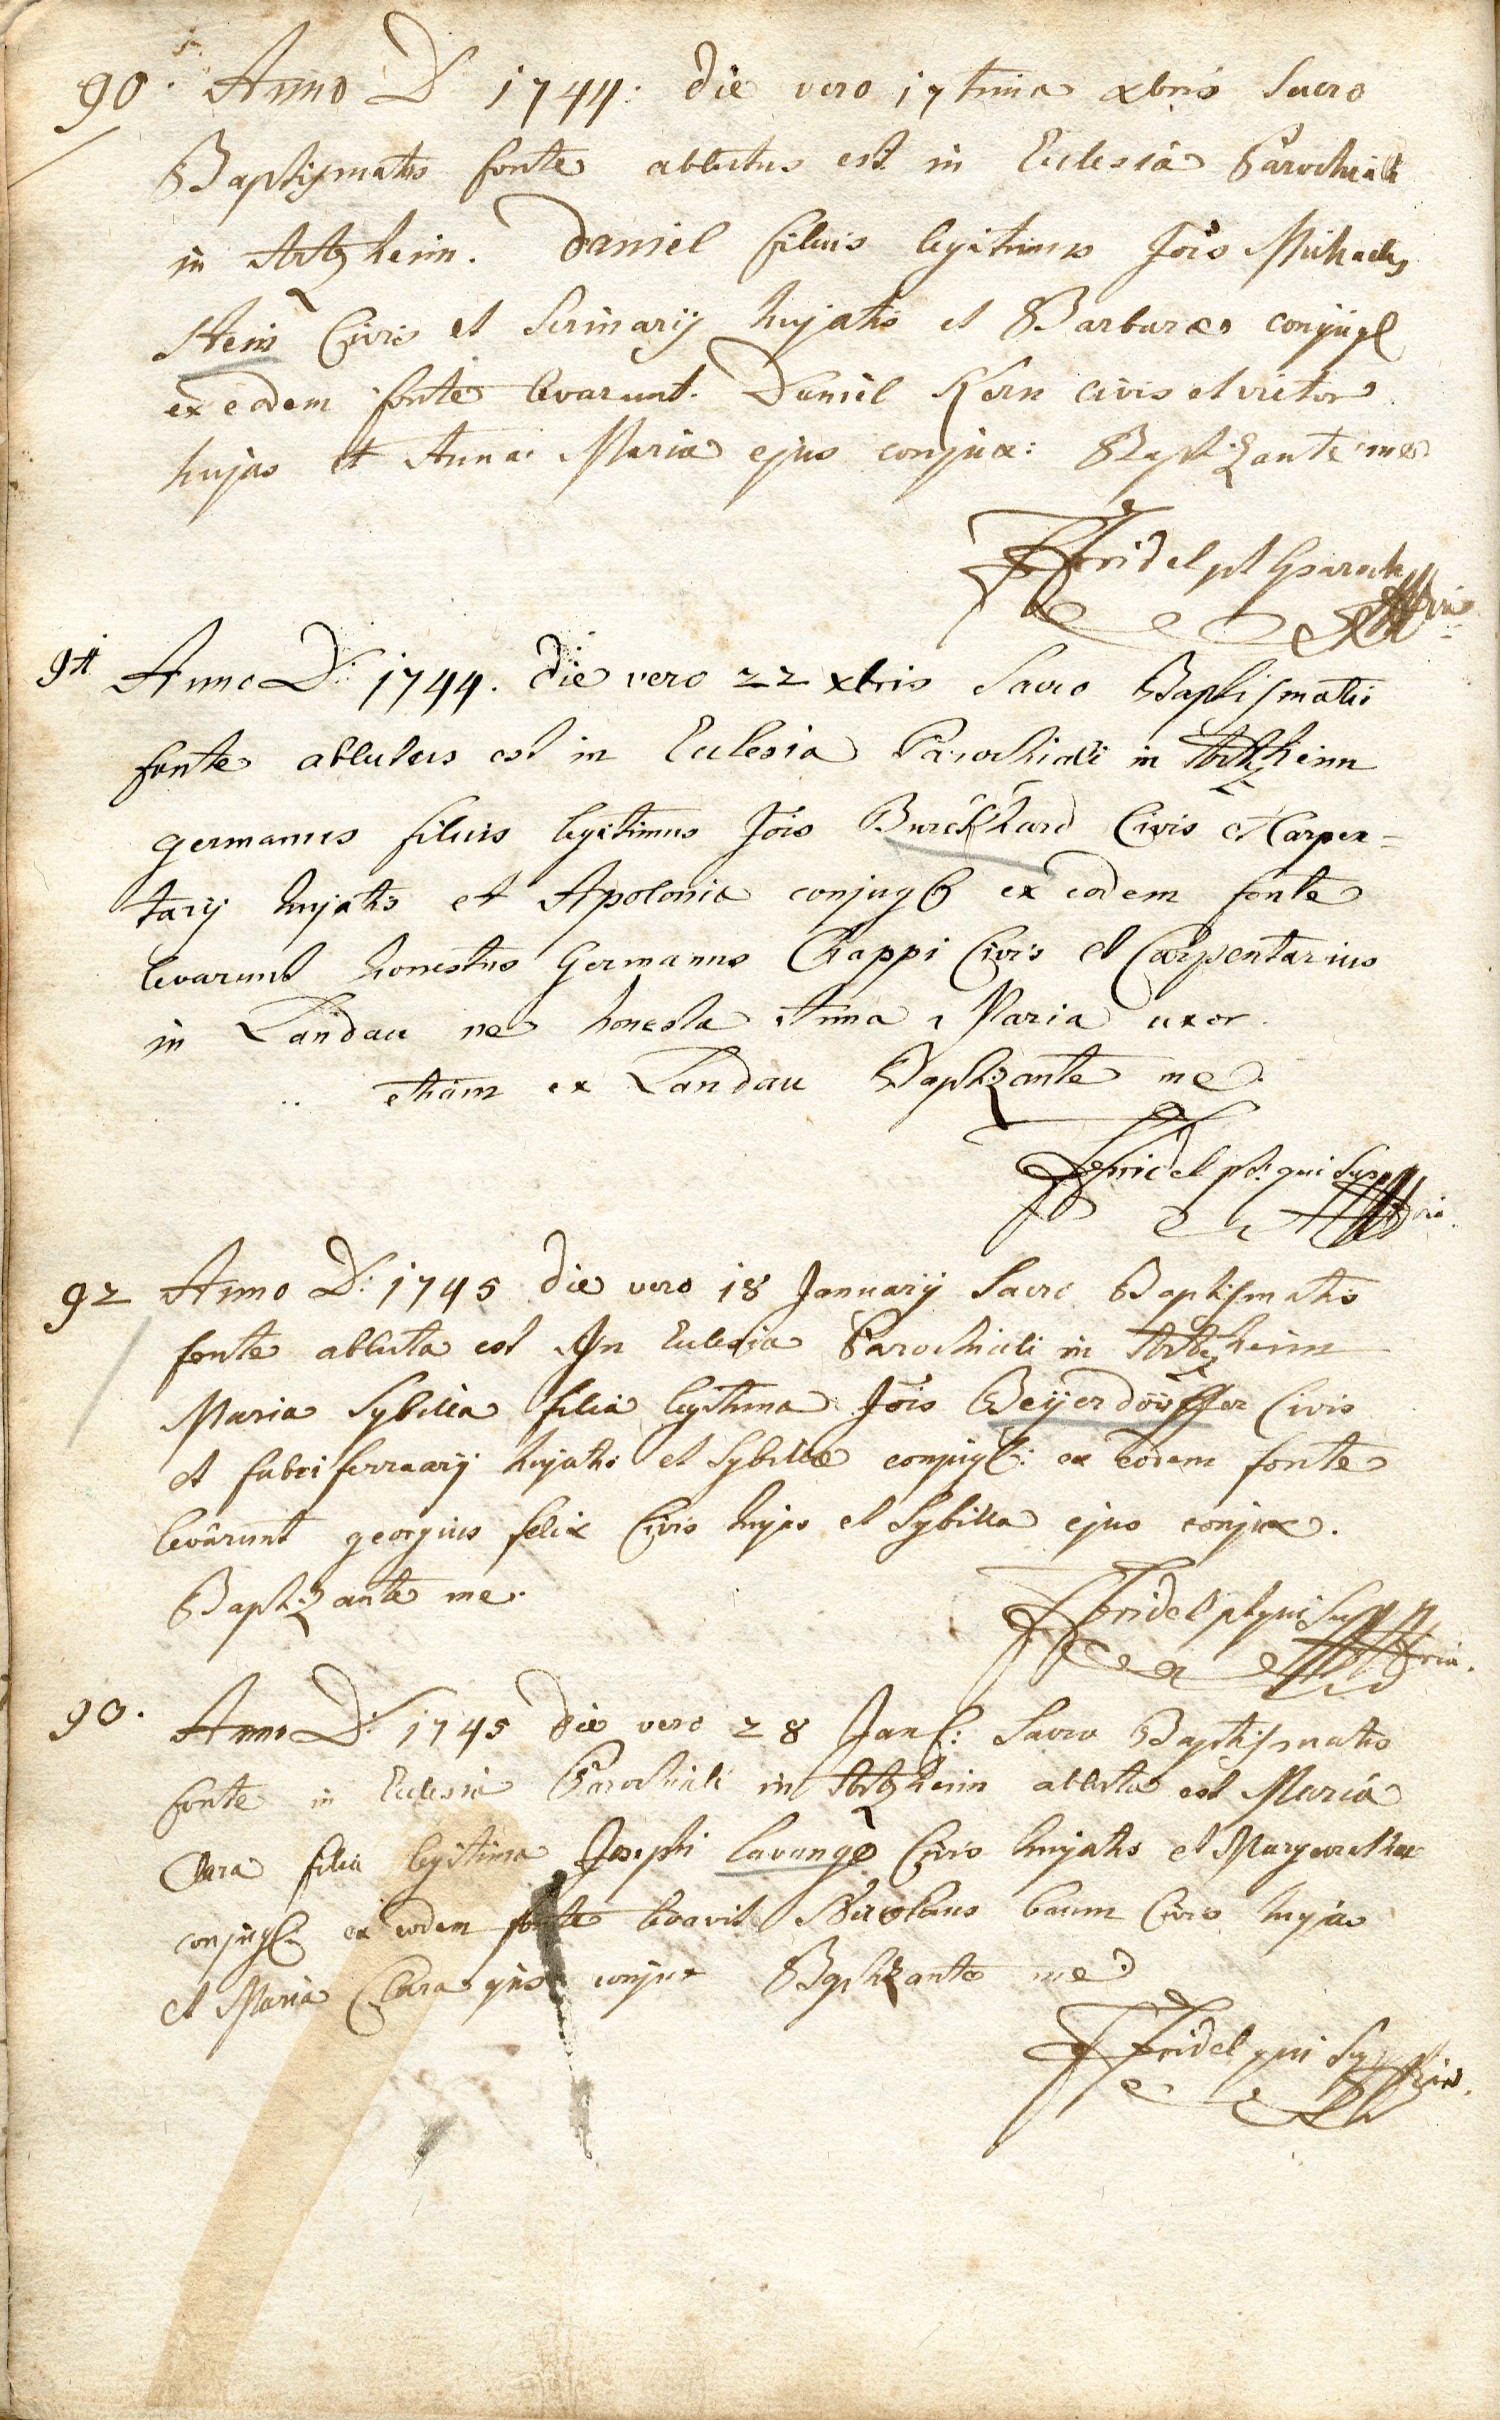 90. Anno D 1744: die vero 17tima xbris Sacro
Baptismatis fonte ablutus est in Eclesia Parochiali
in Artzheim. Daniel filius legitimus Jois Michaelis
Hein Civis et Scrinarij hujatis et Barbarae conjug
ex eodem fonte levarunt. Daniel Kern civis et vietor
hujas et Anna Maria ejus conjux: Baptizante me
Fridel pt Paroch
91 Anno D: 1744. die vero 22 xbris Sacro Baptismatis
fonte ablutus est in Eclesia Parochiali in Artzheim
germanus filius legitimus Jois Burckhard Civis et Carpen=
tarij hujatis et Apolonia conjug ex eodem fonte
levarunt honestus Germanus Chappi Civis et Carpentarius
in Landau ne honesta Anna Maria uxor
etiam ex Landau Baptizante me
Fridel pt. qui Supra
92 Anno D: 1745 die vero 18 Januarij Sacro Baptismatis
fonte abluta est In Eclesia Parochiali in Artzheim
Maria Sybilla filia legitima Jois Beijerdörffer Civis
et fabri ferraarij hujatis et Sybillae conjug: ex eodem fonte
levarunt georgius felix Civis hujas et Sybilla ejus conjux.
Baptizante me.
Fridel pt qui Supra
90. Anno D: 1745 die vero 28 Jan: Sacro Baptismatis
fonte in Eclesia Parochiali in Artzheim abluta est Maria
Clara filia legitima Josephi Lavange Civis hujatis et Margarethae
conjug: ex eodem fonte levavit Nicolaus baum Civis hujas
et Maria Clara ejus conjux Baptizante me
Fridel qui Supra